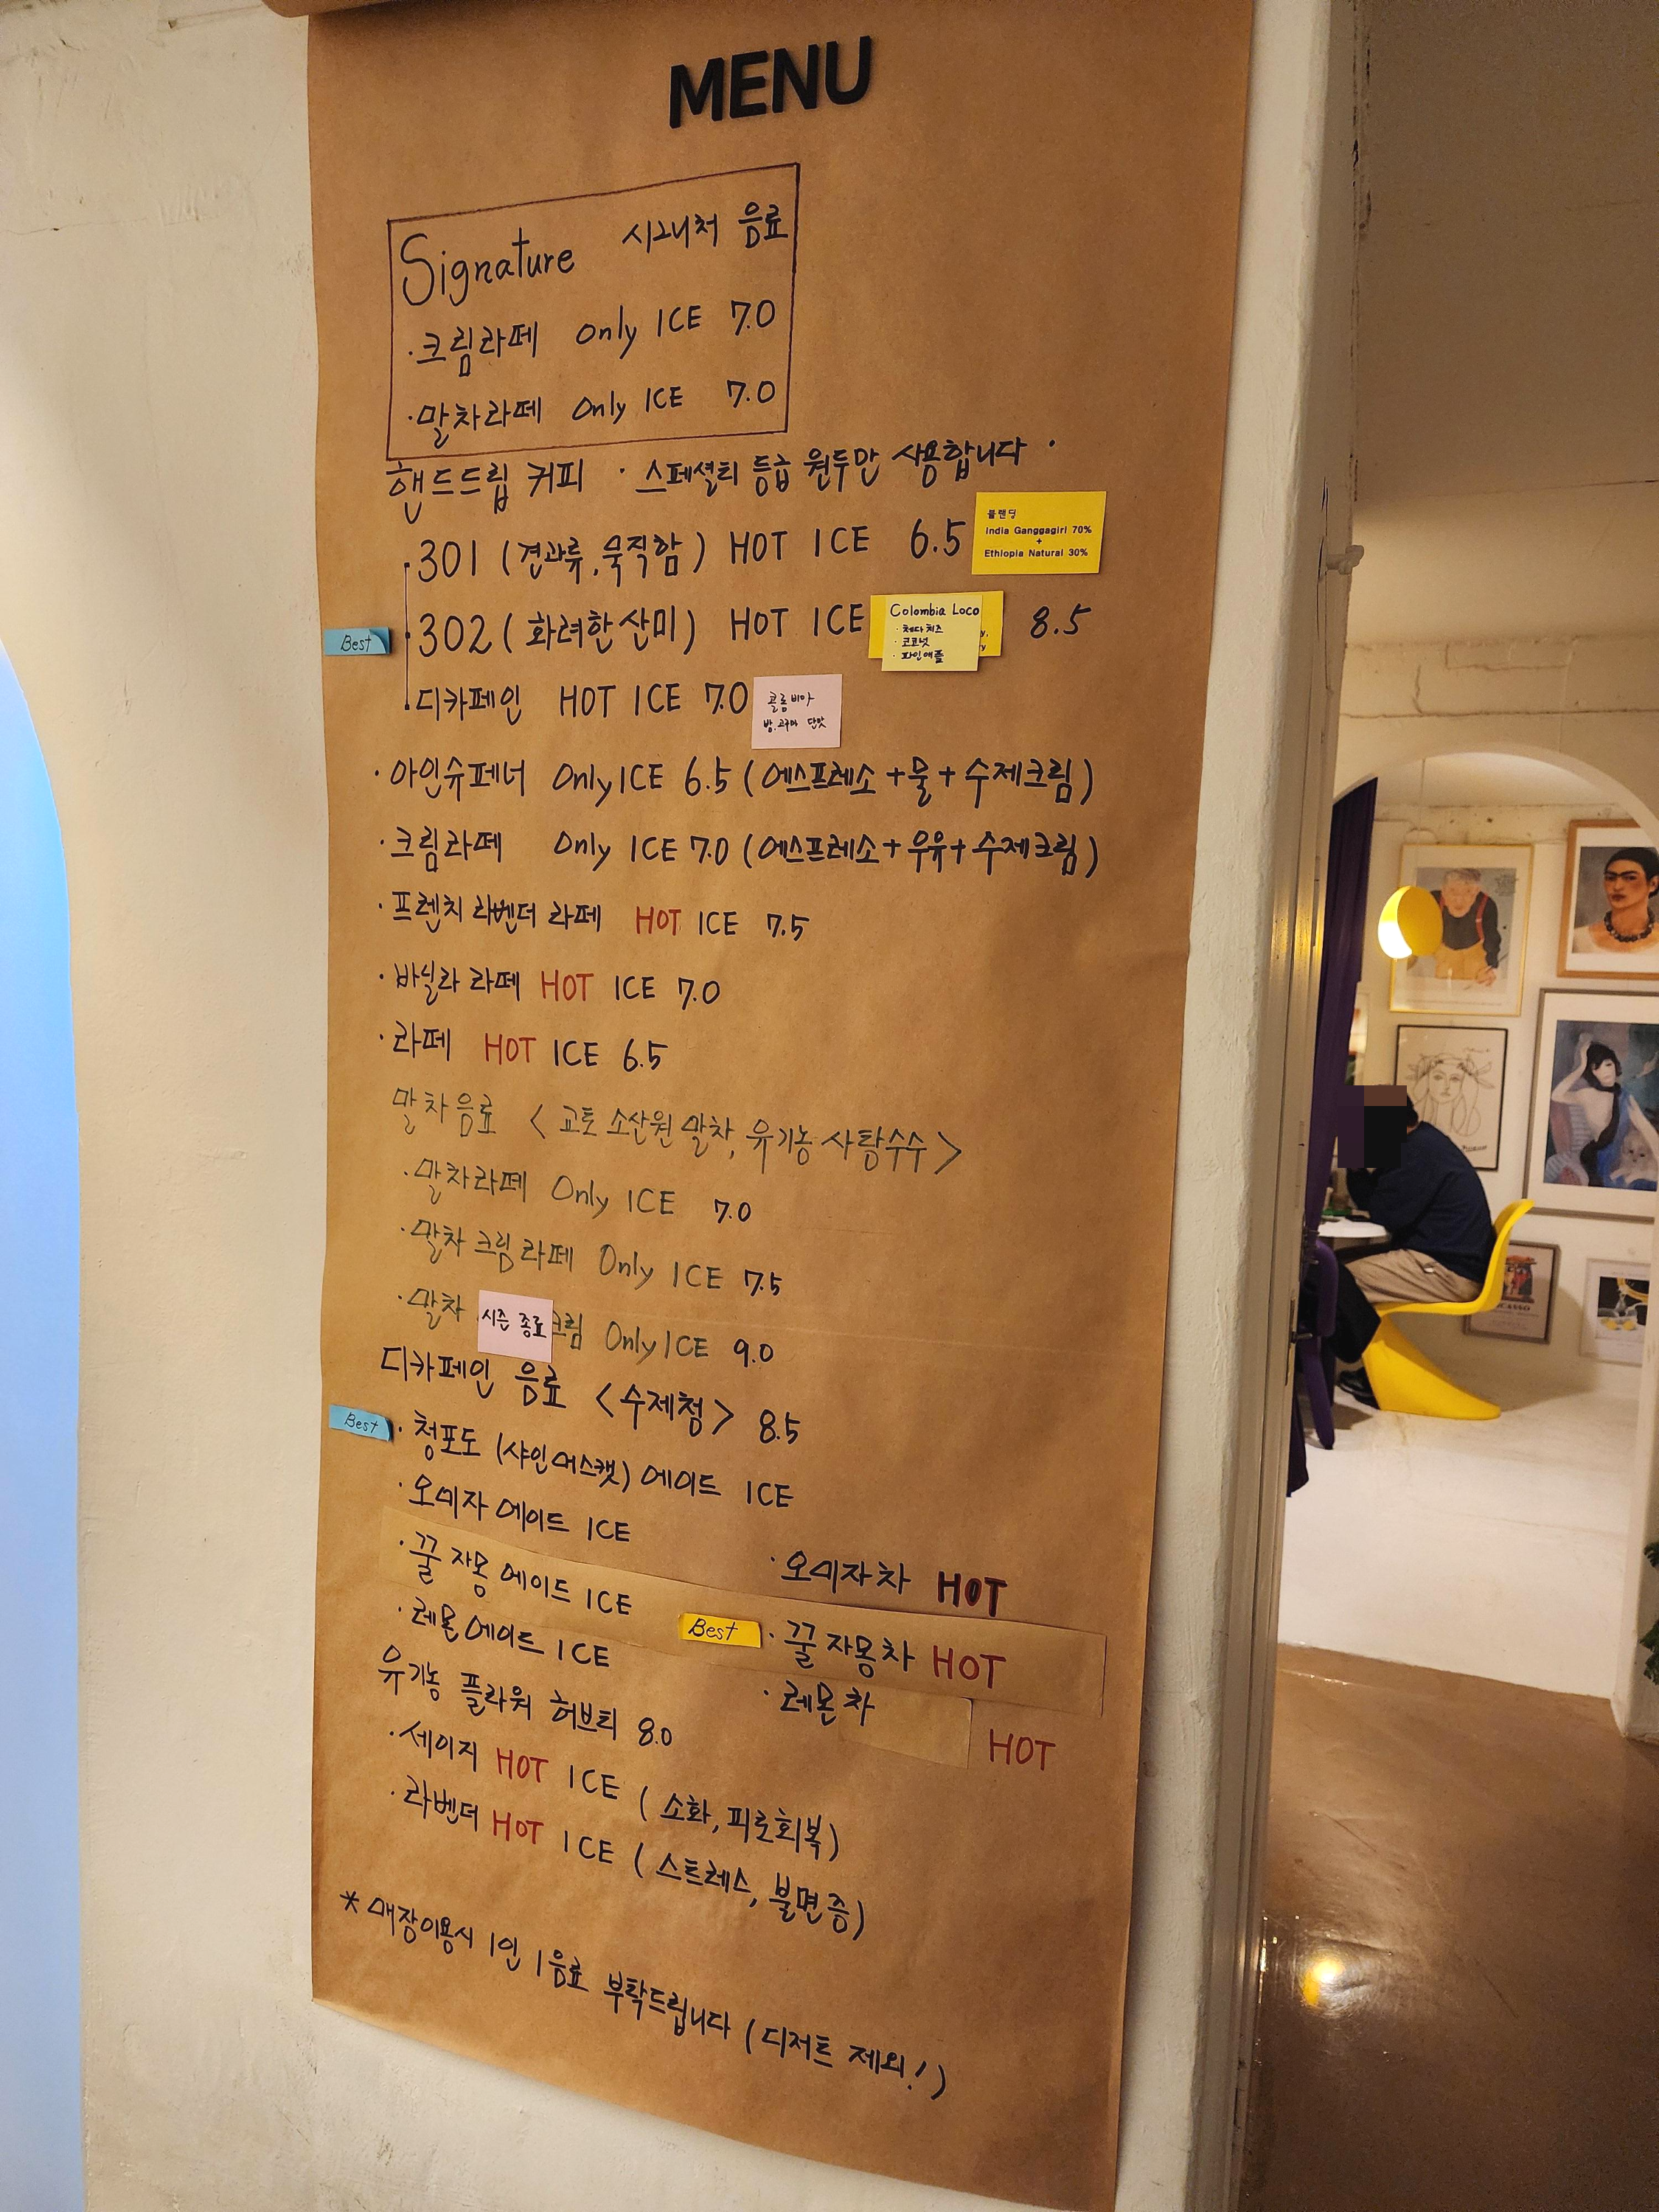 MENU
Signature 시그니처 음료
· 크림라떼 Only ICE 7.0
· 말차라떼 Only ICE 7.0
핸드드립 커피 · 스페셜티 등급 원두만 사용합니다 ·
· 301 (견과류, 묵직함) HOT ICE 6.5
블랜딩
India Ganggagiri 70%
+
Ethiopia Natural 30%
Best
· 302 (화려한 산미) HOT ICE 8.5
Colombia Loco
· 체다치즈
· 코코넛
· 파인애플
· 디카페인 HOT ICE 7.0
콜롬비아
밤, 고구마 단맛
· 아인슈페너 Only ICE 6.5 (에스프레소 + 물 + 수제크림)
· 크림라떼 Only ICE 7.0 (에스프레소 + 우유 + 수제크림)
· 프렌치 라벤더 라떼 HOT ICE 7.5
· 바닐라 라떼 HOT ICE 7.0
· 라떼 HOT ICE 6.5
말차음료 < 교토 소산원 말차, 유기농 사탕수수 >
· 말차라떼 Only ICE 7.0
· 말차 크림 라떼 Only ICE 7.5
· 말차 시즌 종료 크림 Only ICE 9.0
디카페인 음료 <수제청> 8.5
Best · 청포도 (샤인머스캣) 에이드 ICE
· 오미자 에이드 ICE
· 오미자차 HOT
· 꿀 자몽 에이드 ICE
Best · 꿀 자몽차 HOT
· 레몬 에이드 ICE
· 레몬차 HOT
유기농 플라워 허브티 8.0
· 세이지 HOT ICE (소화, 피로회복)
· 라벤더 HOT ICE (스트레스, 불면증)
* 매장이용시 1인 1음료 부탁드립니다 (디저트 제외!)